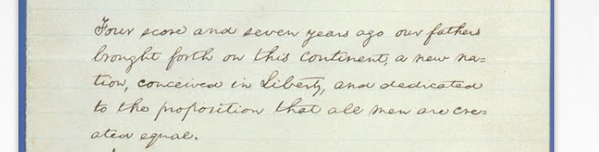 Four score and seven years ago our fathers
brought forth on this continent, a new na=
tion, conceived in Liberty, and dedicated
to the proposition that all men are cre=
ated equal.